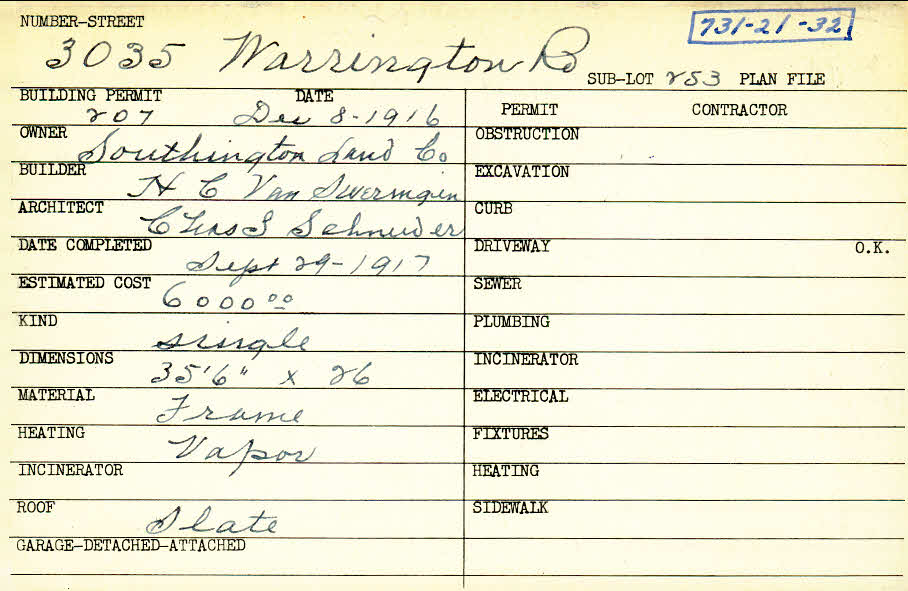 NUMBER-STREET
731-21-32
3035 Warrington Rd
SUB-LOT 253 PLAN FILE
BUILDING PERMIT DATE
207 Dec 8-1916
OWNER
Southington Land Co
BUILDER
H C Van Swermgin
ARCHITECT
Chas S Schneider
DATE COMPLETED
Sept 29-1917
ESTIMATED COST
6000 00
KIND
single
DIMENSIONS
35'6" x 26
MATERIAL
Frame
HEATING
Vapor
INCINERATOR
ROOF
Slate
GARAGE-DETACHED-ATTACHED
PERMIT CONTRACTOR
OBSTRUCTION
EXCAVATION
CURB
DRIVEWAY O.K.
SEWER
PLUMBING
INCINERATOR
ELECTRICAL
FIXTURES
HEATING
SIDEWALK